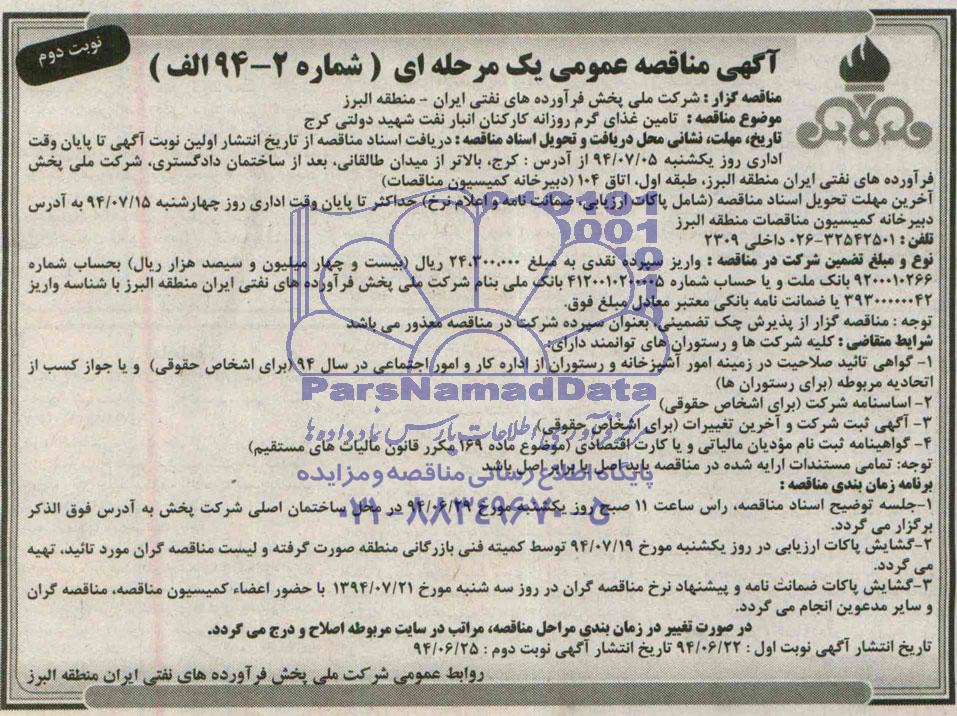 نوبت دوم
آگهی مناقصه عمومی یک مرحله ای ( شماره ۲-۹۴ الف )
مناقصه گزار : شرکت ملی پخش فرآورده های نفتی ایران - منطقه البرز
موضوع مناقصه : تامین غذای گرم روزانه کارکنان انبار نفت شهید دولتی کرج
تاریخ، مهلت، نشانی محل دریافت و تحویل اسناد مناقصه : دریافت اسناد مناقصه از تاریخ انتشار اولین نوبت آگهی تا پایان وقت
اداری روز یکشنبه ۹۴/۰۷/۰۵ از آدرس : کرج، بالاتر از میدان طالقانی، بعد از ساختمان دادگستری، شرکت ملی پخش
فرآورده های نفتی ایران منطقه البرز، طبقه اول، اتاق ۱۰۴ (دبیرخانه کمیسیون مناقصات)
آخرین مهلت تحویل اسناد مناقصه (شامل پاکات ارزیابی، ضمانت نامه و اعلام نرخ) حداکثر تا پایان وقت اداری روز چهارشنبه ۹۴/۰۷/۱۵ به آدرس
دبیرخانه کمیسیون مناقصات منطقه البرز
تلفن : ۳۲۵۴۲۵۰۱-۰۲۶ داخلی ۲۳۰۹
نوع و مبلغ تضمین شرکت در مناقصه : واریز سپرده نقدی به مبلغ ۲۴.۳۰۰.۰۰۰ ریال (بیست و چهار میلیون و سیصد هزار ریال) بحساب شماره
۹۲۰۰۰۱۰۲۶۶ بانک ملت و یا حساب شماره ۴۱۲۰۰۱۰۲۰۰۰۰۵ بانک ملی بنام شرکت ملی پخش فرآورده های نفتی ایران منطقه البرز با شناسه واریز
۳۹۳۰۰۰۰۰۴۲ یا ضمانت نامه بانکی معتبر معادل مبلغ فوق.
توجه : مناقصه گزار از پذیرش چک تضمینی، بعنوان سپرده شرکت در مناقصه معذور می باشد
شرایط متقاضی : کلیه شرکت ها و رستوران های توانمند دارای:
۱- گواهی تائید صلاحیت در زمینه امور آشپزخانه و رستوران از اداره کار و امور اجتماعی در سال ۹۴ (برای اشخاص حقوقی) و یا جواز کسب از
اتحادیه مربوطه (برای رستوران ها)
۲- اساسنامه شرکت (برای اشخاص حقوقی)
۳- آگهی ثبت شرکت و آخرین تغییرات (برای اشخاص حقوقی)
۴- گواهینامه ثبت نام مؤدیان مالیاتی و یا کارت اقتصادی (موضوع ماده ۱۶۹ مکرر قانون مالیات های مستقیم)
توجه: تمامی مستندات ارایه شده در مناقصه باید اصل یا برابر اصل باشد
برنامه زمان بندی مناقصه :
۱-جلسه توضیح اسناد مناقصه، راس ساعت ۱۱ صبح روز یکشنبه مورخ ۹۴/۰۶/۲۹ در محل ساختمان اصلی شرکت پخش به آدرس فوق الذکر
برگزار می گردد.
۲-گشایش پاکات ارزیابی در روز یکشنبه مورخ ۹۴/۰۷/۱۹ توسط کمیته فنی بازرگانی منطقه صورت گرفته و لیست مناقصه گران مورد تائید، تهیه
می گردد.
۳-گشایش پاکات ضمانت نامه و پیشنهاد نرخ مناقصه گران در روز سه شنبه مورخ ۱۳۹۴/۰۷/۲۱ با حضور اعضاء کمیسیون مناقصه، مناقصه گران
و سایر مدعوین انجام می گردد.
در صورت تغییر در زمان بندی مراحل مناقصه، مراتب در سایت مربوطه اصلاح و درج می گردد.
تاریخ انتشار آگهی نوبت اول : ۹۴/۰۶/۲۲ تاریخ انتشار آگهی نوبت دوم : ۹۴/۰۶/۲۵
روابط عمومی شرکت ملی پخش فرآورده های نفتی ایران منطقه البرز
ParsNamadData
پایگاه اطلاع رسانی مناقصه و مزایده
۰۲۱-۸۸۳۴۹۶۷۰-۵